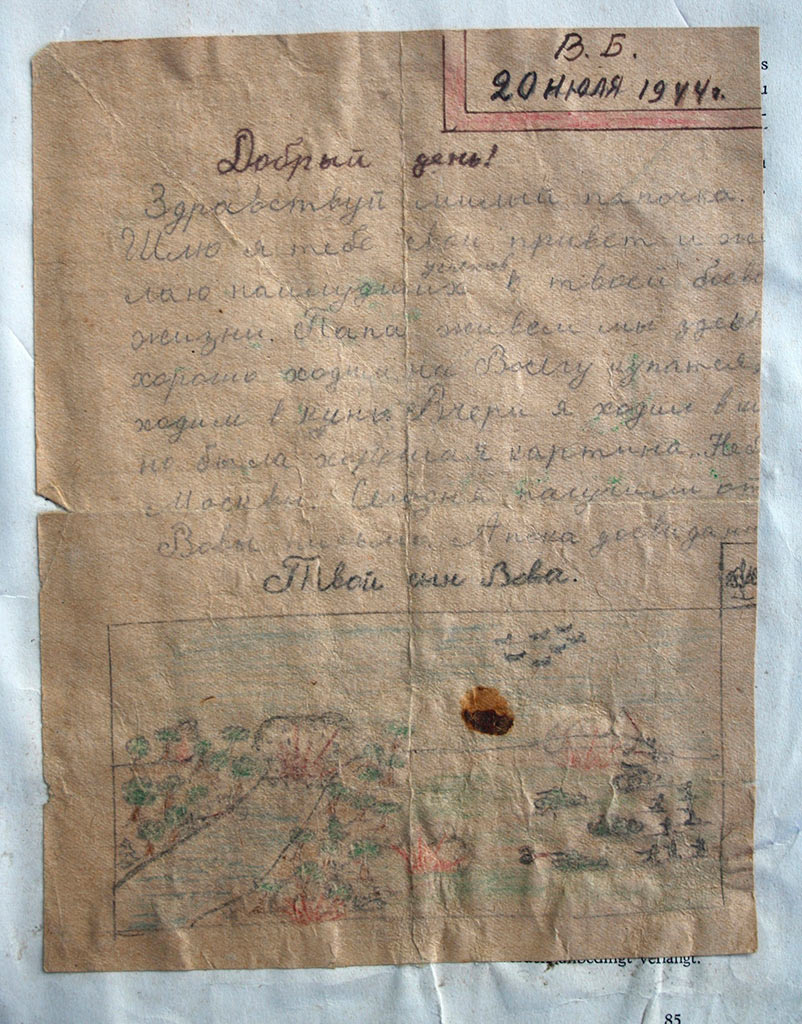 В. Б.
20 июля 1944 г.
Добрый день!
Здравствуй милый папочка.
Шлю я тебе свой привет и же
лаю наилучших успехов в твоей боев
жизни. Папа живем мы здесь
хорошо ходим на Волгу купатся,
ходим в кино. Вчера я ходил в
но была хорошая картина. Небо
Москвы. Сегодня получили от
Вовы письмо. А пока досвидан
Твой сын Вова.
unbedingt verlangt.
85